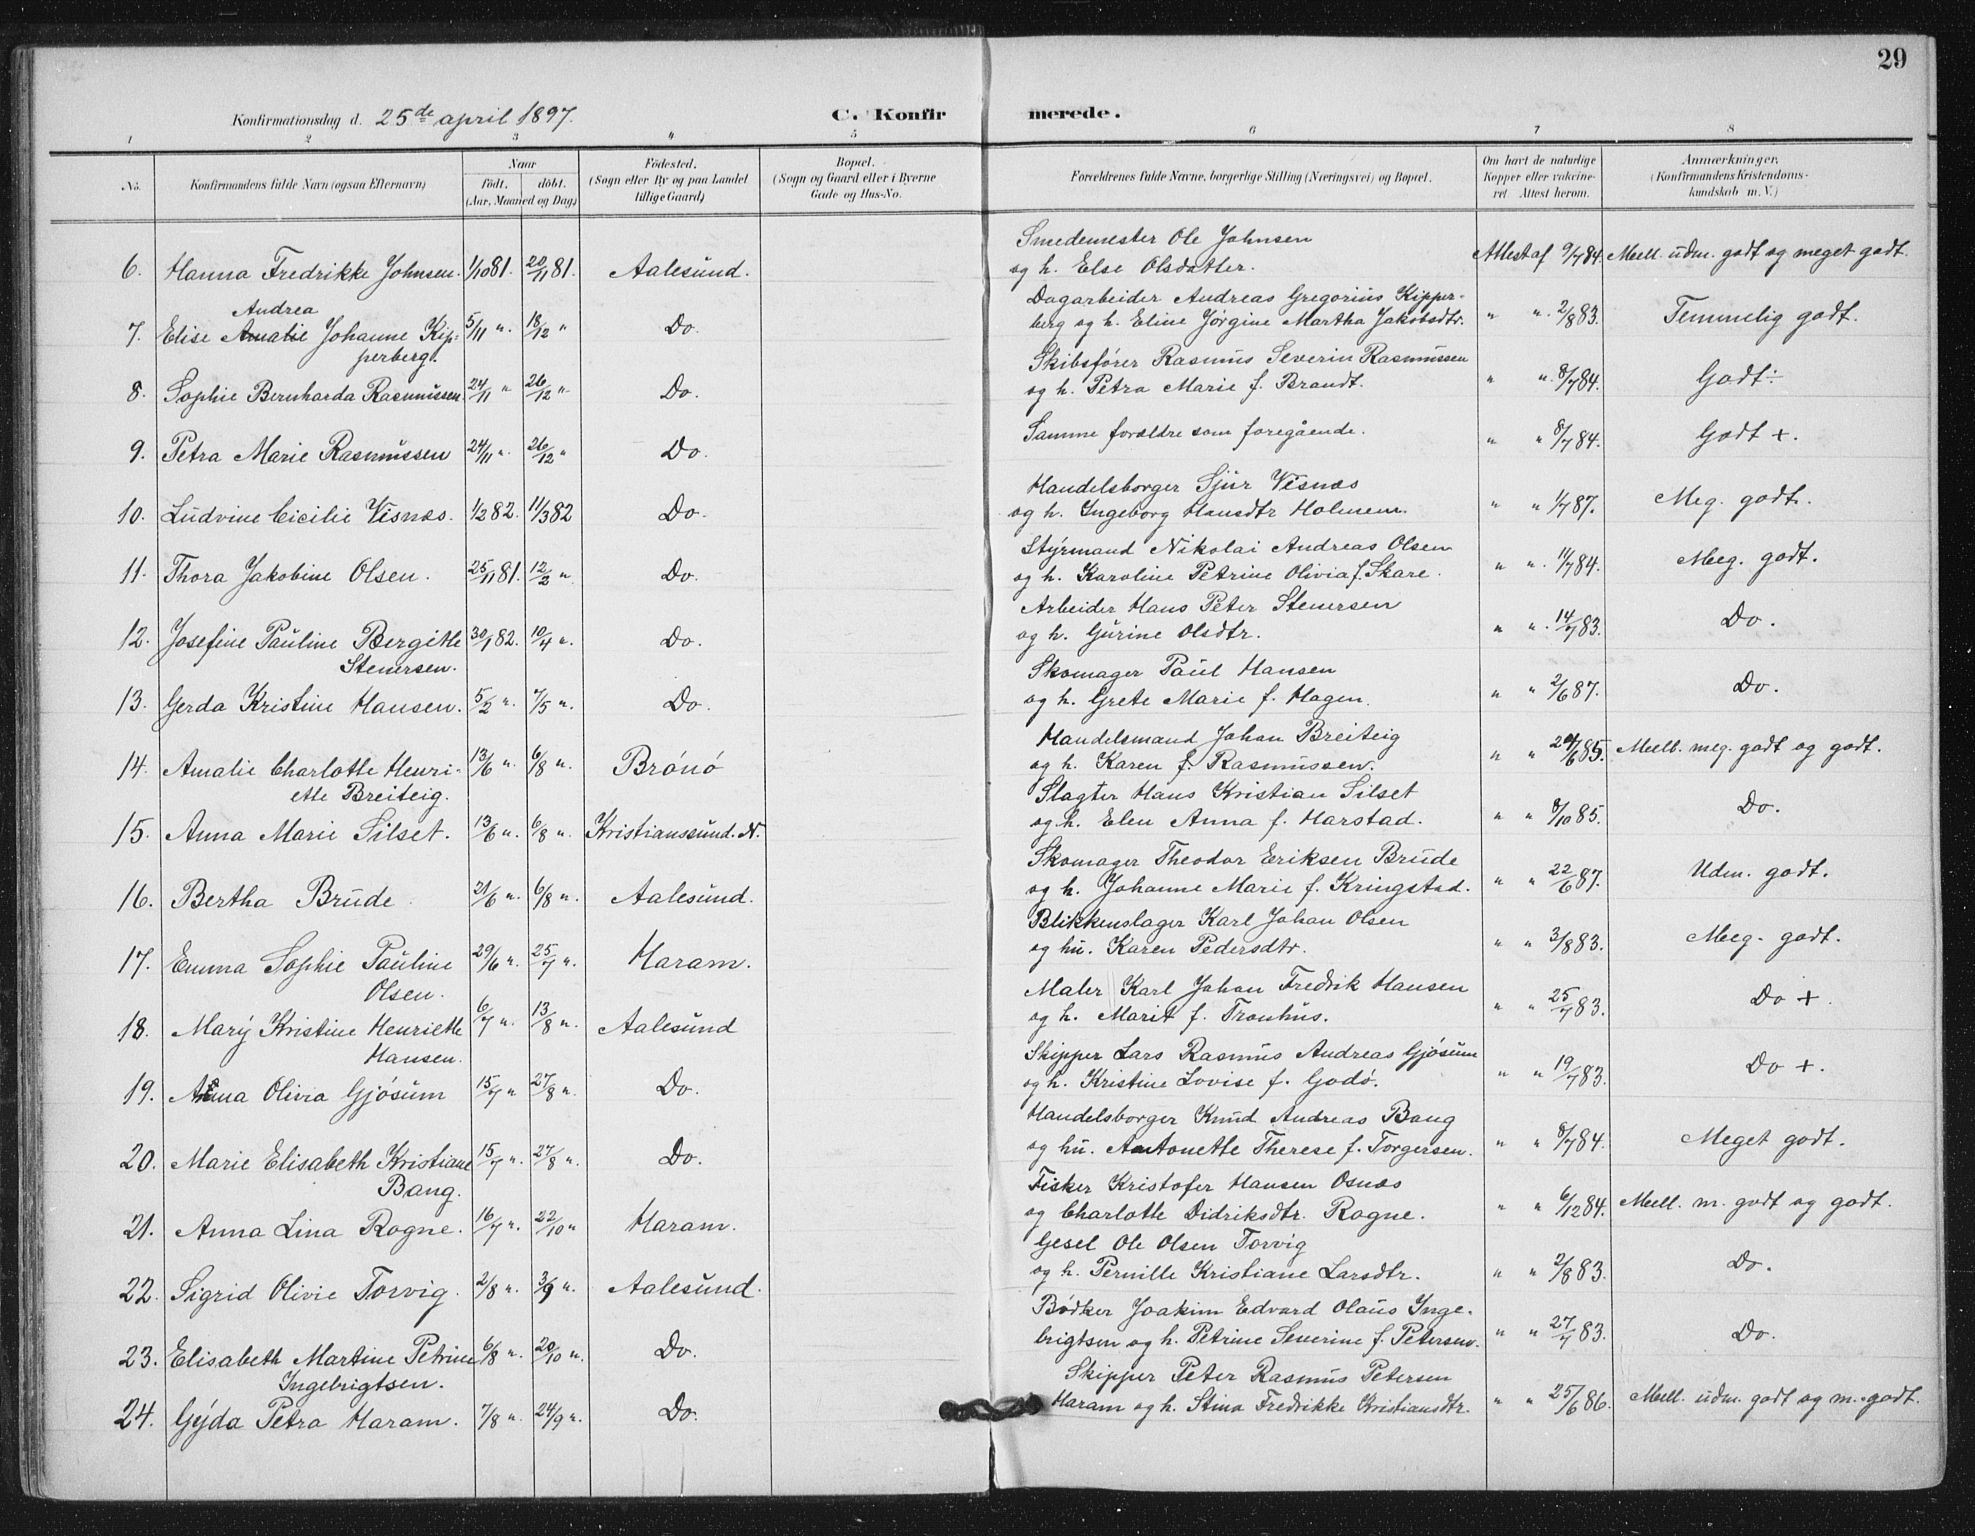 29
Konfirmationsdag d. 25de april 1897.
C. Konfirmerede.
1 2 3 4 5 6 7 8
No. Konfirmandens fulde Navn (ogsaa Efternavn)
Naar
født. döbt.
(Aar, Maaned og Dag)
Födested.
(Sogn eller By og paa Landet
tillige Gaard)
Bopæl.
(Sogn og Gaard eller i Byerne
Gade og Hus-No.
Forældrenes fulde Navne, borgerlige Stilling (Næringsvei) og Bopæl.
Om havt de naturlige
Kopper eller vakcine-
ret Attest herom.
Anmærkninger.
(Konfirmandens Kristendoms-
kundskab m. V.)
6. Hanna Fredrikke Johnsen. 1/10 81. 20/11 81. Aalesund.
Smedemester Ole Johnsen
og h. Else Olsdatter. Attest af 9/7 84. Mell. udm. godt og meget godt.
Andrea
7. Elise Amalie Johanne Kip-
perberg. 5/11 " 18/12 " Do.
Dagarbeider Andreas Gregorius Kipper-
berg og h. Eline Jørgine Martha Jakobsdtr. " " 2/8 83. Temmelig godt.
8. Sophie Bernharda Rasmussen. 24/11 " 26/12 " Do.
Skibsfører Rasmus Severin Rasmussen
og h. Petra Marie f. Brandt. " " 8/7 84. Godt ÷
9. Petra Marie Rasmussen 24/11 " 26/12 " Do.
Samme forældre som foregående. " " 8/7 84. Godt +.
10. Ludvine Cicilie Visnæs. 1/2 82. 11/3 82 Do.
Handelsborger Sjur Visnæs
og h. Ingeborg Hansdtr Holmem. " " 1/7 87. Meg. godt.
11. Thora Jakobine Olsen. 25/11 81. 12/2 " Do.
Styrmand Nikolai Andreas Olsen
og h. Karoline Petrine Olivia f. Skare. " " 11/7 84. Meg. godt.
12. Josefine Pauline Bergitte
Stenersen. 30/1 82. 10/4 ". Do.
Arbeider Hans Peter Stenersen
og h. Gurine Olsdtr. " " 14/7 83. Do.
13. Gerda Kristine Hansen. 5/2 ". 7/5 ". Do.
Skomager Paul Hansen
og h. Grete Marie f. Hagen. " " 2/6 87. Do.
14. Amalie Charlotte Henri-
ette Breiteig. 13/6 ". 6/8 ". Brónó
Handelsmand Johan Breiteig
og h. Karen f. Rasmussen. " " /6 85. Mell. meg. godt og godt.
15. Anna Marie Silset. 13/6 ". 6/8 ". Kristianssund. N.
Slagter Hans Kristian Silset
og h. Elen Anna f. Harstad. " " 8/10 85. Do.
16. Bertha Brude. 21/6 ". 6/8 ". Aalesund.
Skomager Theodor Eriksen Brude
og h. Johanne Marie f. Kringstad. " " 22/6 87. Udm. godt.
17. Emma Sophie Pauline
Olsen. 29/6 ". 25/7 ". Haram.
Blikkenslager Karl Johan Olsen
og hu. Karen Pedersdtr. " " 3/8 83. Meg. godt.
18. Mary Kristine Henriette
Hansen. 6/7 ". 13/8 ". Aalesund
Maler Karl Johan Fredrik Hansen
og h. Marit f. Tronhus. " " 25/7 83. Do +.
19. Olivia Gjósum 15/7 " 27/8 ". Do.
Skipper Lars Rasmus Andreas Gjósum
og h. Kristine Lovise f. Godó. " " 19/7 83. Do +.
20. Marie Elisabeth Kristiane
Bang. 15/7 ". 27/8 ". Do.
Handelsborger Knud Andreas Bang
og hu. Antonette Therese f. Torgersen. " " 8/7 84. Meget godt.
21. Anna Lina Rogne. 16/7 ". 22/10 " Haram.
Fisker Kristofer Hansen Osnæs
og Charlotte Didriksdtr. Rogne. " " 6/12 84. Mell. m. godt og godt.
22. Sigrid Olivie Torvig. 2/8 ". 3/9 ". Aalesund.
Gesel Ole Olsen Torvig
og h. Pernille Kristiane Larsdtr. " " 2/8 83. Do.
23. Elisabeth Martine Petrine
Ingebrigtsen. 6/8 ". 20/10 ". Do.
Bódker Joakim Edvard Olaus Inge-
brigtsen og h. Petrine Severine f. Petersen. " " 27/7 83. Do.
24. Gyda Petra Haram. 7/8 ". 24/9 ". Do.
Skipper Peter Rasmus Petersen
Haram og h. Stina Fredrikke Kristiansdtr. " " 25/6 86. Mell. udm. godt og m. godt.